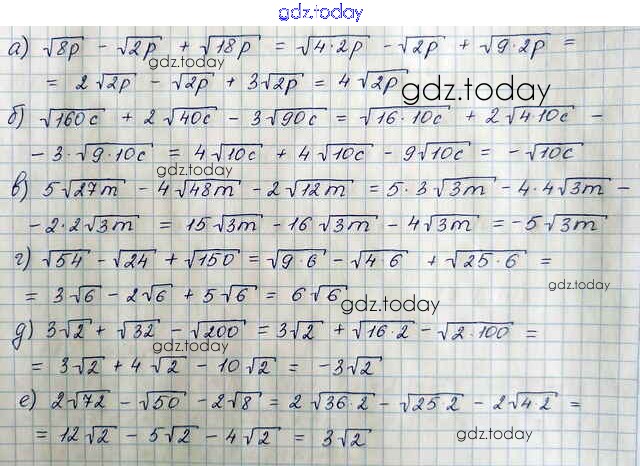 gdz.today
а) √8p − √2p + √18p = √4·2p − √2p + √9·2p =
gdz.today
= 2√2p − √2p + 3√2p = 4√2p
gdz.today
б) √160c + 2√40c − 3√90c = √16·10c + 2√4·10c −
− 3·√9·10c = 4√10c + 4√10c − 9√10c = −√10c
gdz.today
в) 5√27m − 4√48m − 2√12m = 5·3√3m − 4·4√3m −
− 2·2√3m = 15√3m − 16√3m − 4√3m = −5√3m
г) √54 − √24 + √150 = √9·6 − √4·6 + √25·6 =
gdz.today
= 3√6 − 2√6 + 5√6 = 6√6
gdz.today
д) 3√2 + √32 − √200 = 3√2 + √16·2 − √2·100 =
gdz.today
= 3√2 + 4√2 − 10√2 = −3√2
е) 2√72 − √50 − 2√8 = 2√36·2 − √25·2 − 2√4·2 =
= 12√2 − 5√2 − 4√2 = 3√2
gdz.today